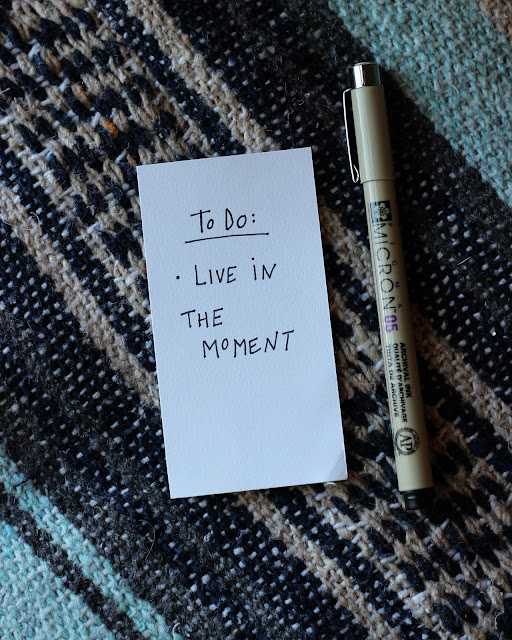 To Do:
• LIVE iN
THE
MOMENT
MiCRON 05
ARCHIVAL INK
QUALITÉ D'ARCHIVAGE
TINTA DE ARCHIVE